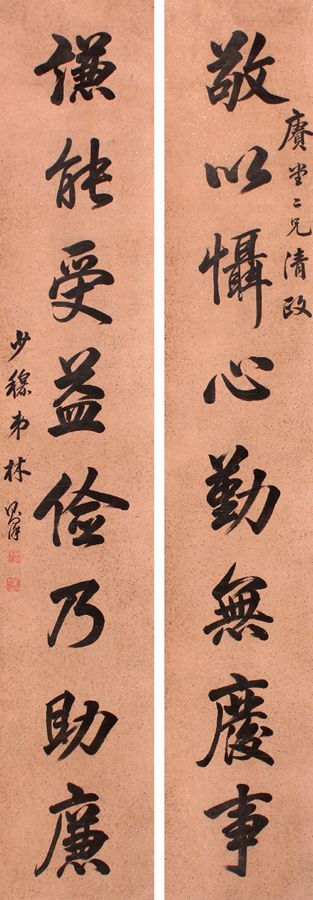 敬以懾心勤無廢事
賡堂二兄清政
謙能受益儉乃助廉
少穆弟林則徐